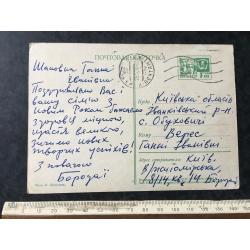 ПОЧТОВАЯ КАРТОЧКА
Шановна Ганна
Іванівна
Поздоровляю Вас і
вашу сім'ю з
Новим Роком бажаємо
здоров'я міцного,
щастя великого,
нових
творчих успіхів!
З повагою
Бородаї
Куди Київська область
Іванківський р-н
с. Обуховичі
Кому Верес
Ганні Іванівні
Київ.
кв. 14
Бородай